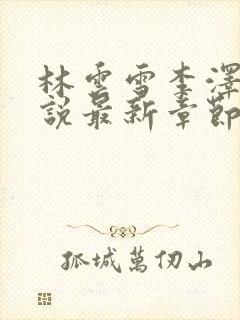 林雲雪李澤
說最新章節
孤城萬仞山